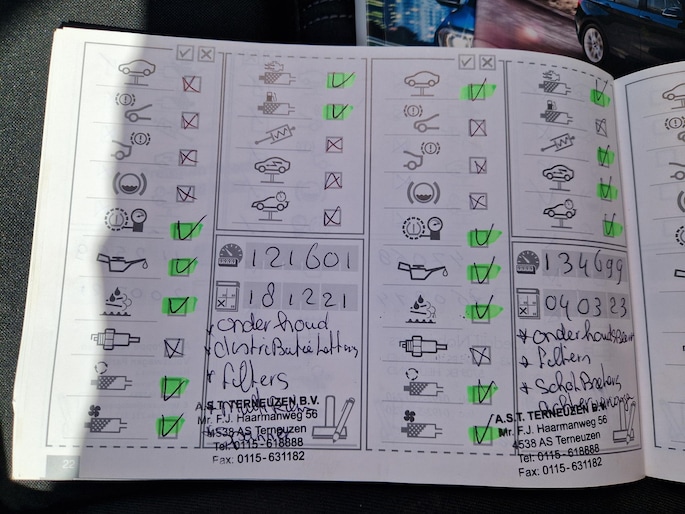 121601
181221
* onderhoud
* distributieketting
* filters
A.S.T. TERNEUZEN B.V.
Mr. F.J. Haarmanweg 56
4538 AS Terneuzen
Tel: 0115-618888
Fax: 0115-631182
22
134699
040323
* onderhoudsbeurt
* filters
* Schokbrekers
A.S.T. TERNEUZEN B.V.
Mr. F.J. Haarmanweg 56
4538 AS Terneuzen
Tel: 0115-618888
Fax: 0115-631182